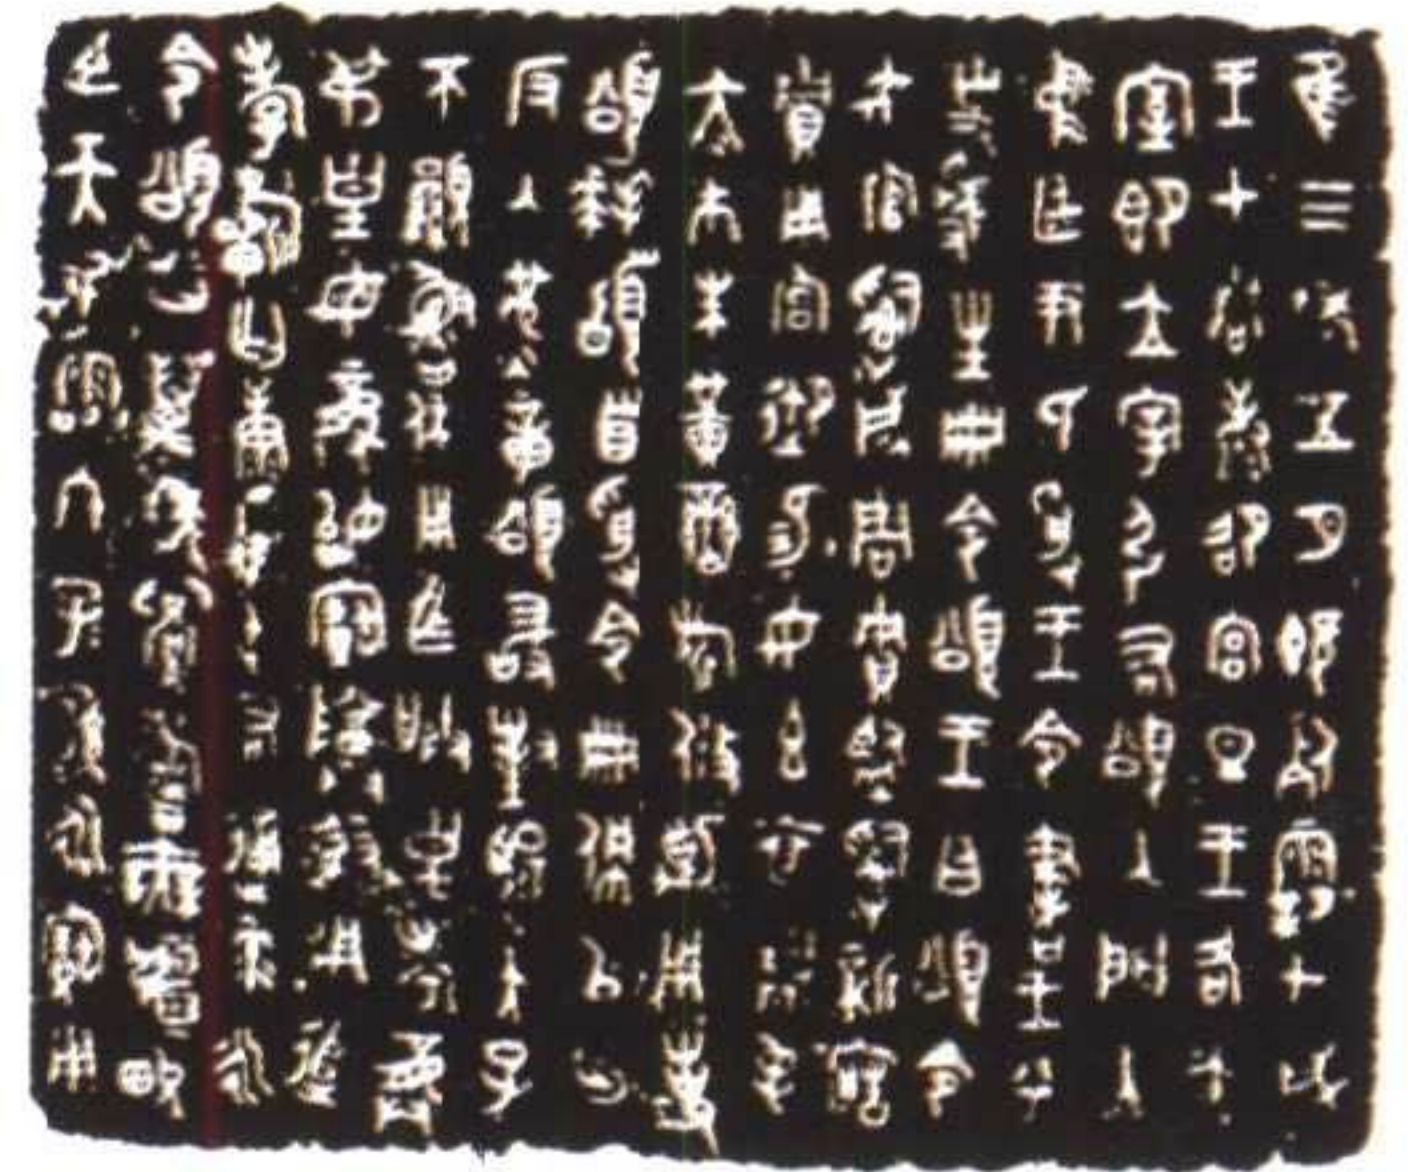 隹三年五月既死霸甲戌
王才周康卲宮旦王各大
室即立宰引右頌入門立
中廷尹氏受王令書王乎
史虢生冊令頌王曰頌令
女官𤔲成周貯監𤔲新造
貯用宮御易女玄衣黹屯
赤巿朱黃䜌旂攸勒用事
頌拜稽首受令冊佩以出
反入堇章頌敢對揚天子
不顯魯休用乍朕皇考龏
弔皇母龏始寶尊簋用追
孝祈匃康𩛥屯右通彔永
令頌其萬年眉壽無疆畯
臣天子霝冬子孫永寶用